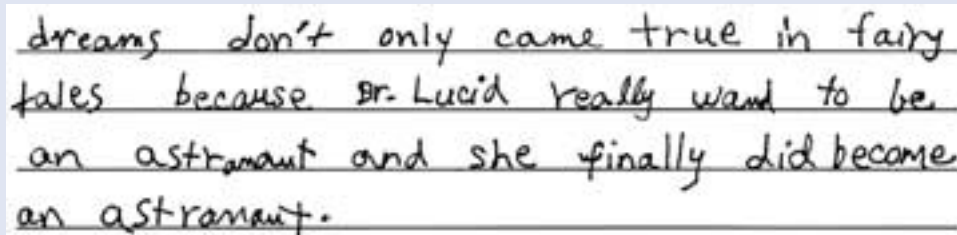 dreams don't only came true in fairy
tales because Dr. Lucid really wand to be
an astranaut and she finally did become
an astranaut.